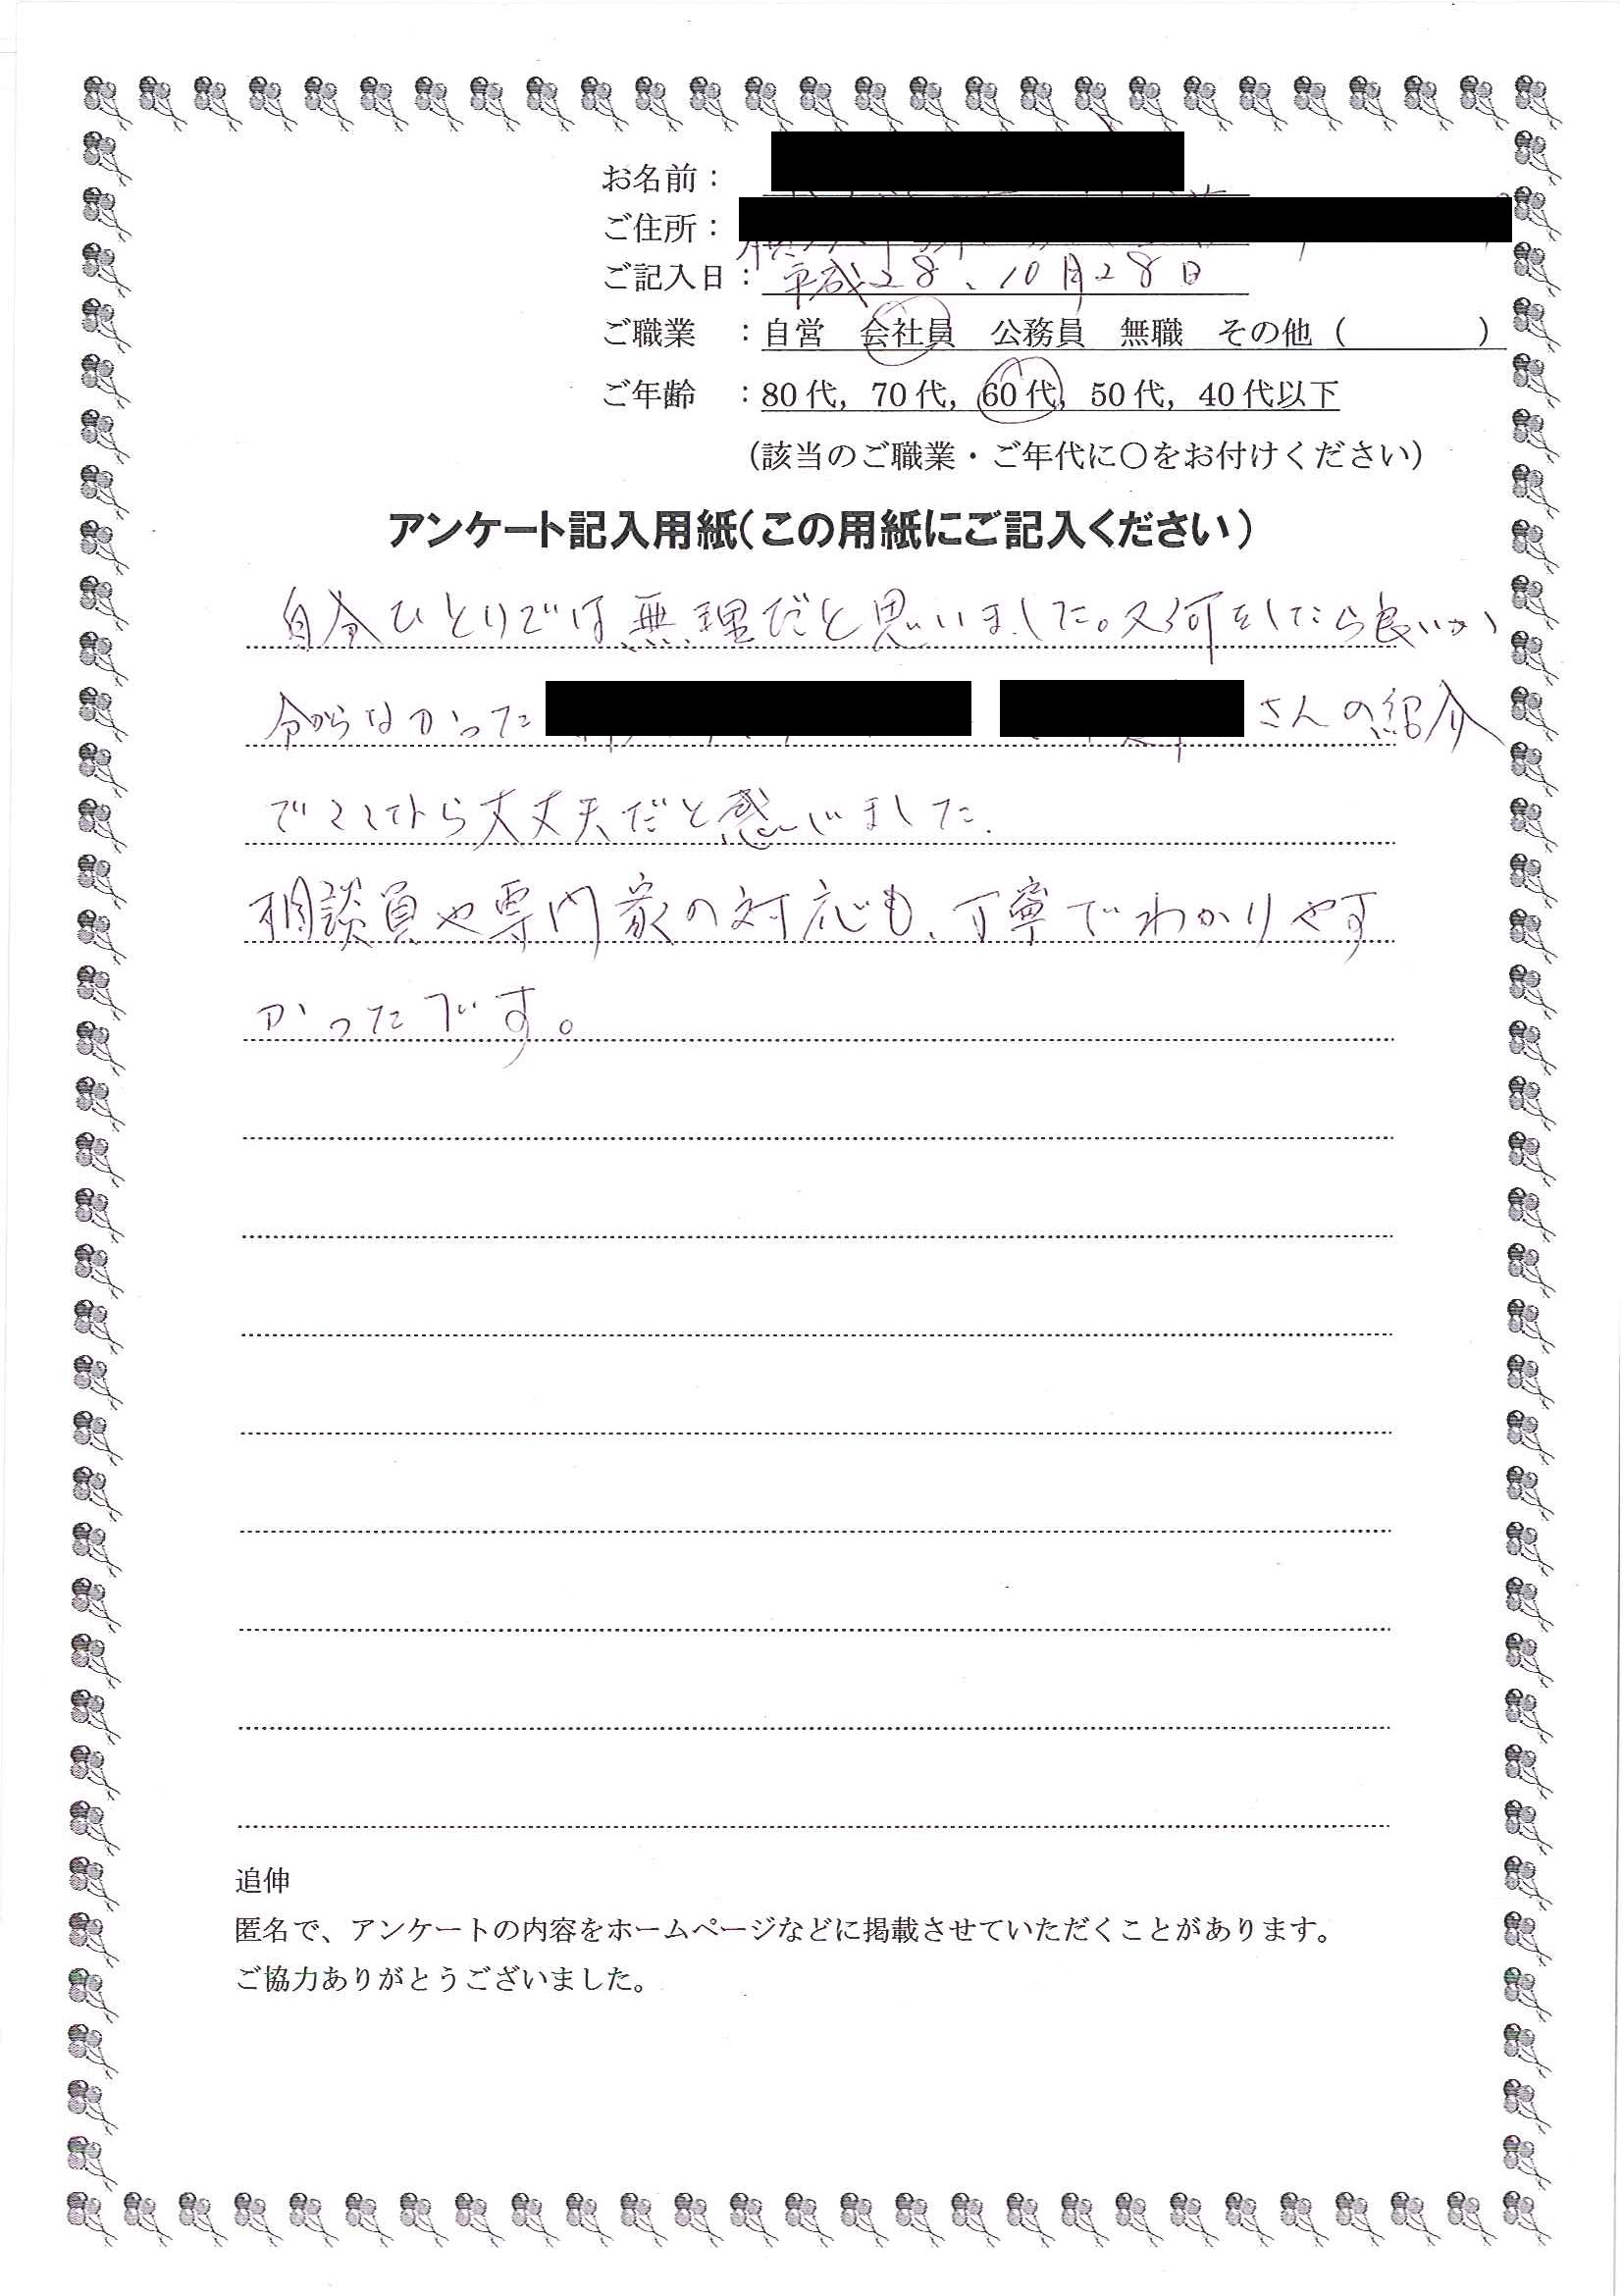 お名前：
ご住所：
ご記入日：平成28、10月28日
ご職業　：自営　会社員　公務員　無職　その他（　　　　）
ご年齢　：80代，70代，60代，50代，40代以下
（該当のご職業・ご年代に○をお付けください）
アンケート記入用紙（この用紙にご記入ください）
自分ひとりでは無理だと思いました。又何をしたら良いか
分からなかった さんの紹介
でここなら大丈夫だと感じました.
相談員や専門家の対応も、丁寧でわかりやす
かったです。
追伸
匿名で、アンケートの内容をホームページなどに掲載させていただくことがあります。
ご協力ありがとうございました。